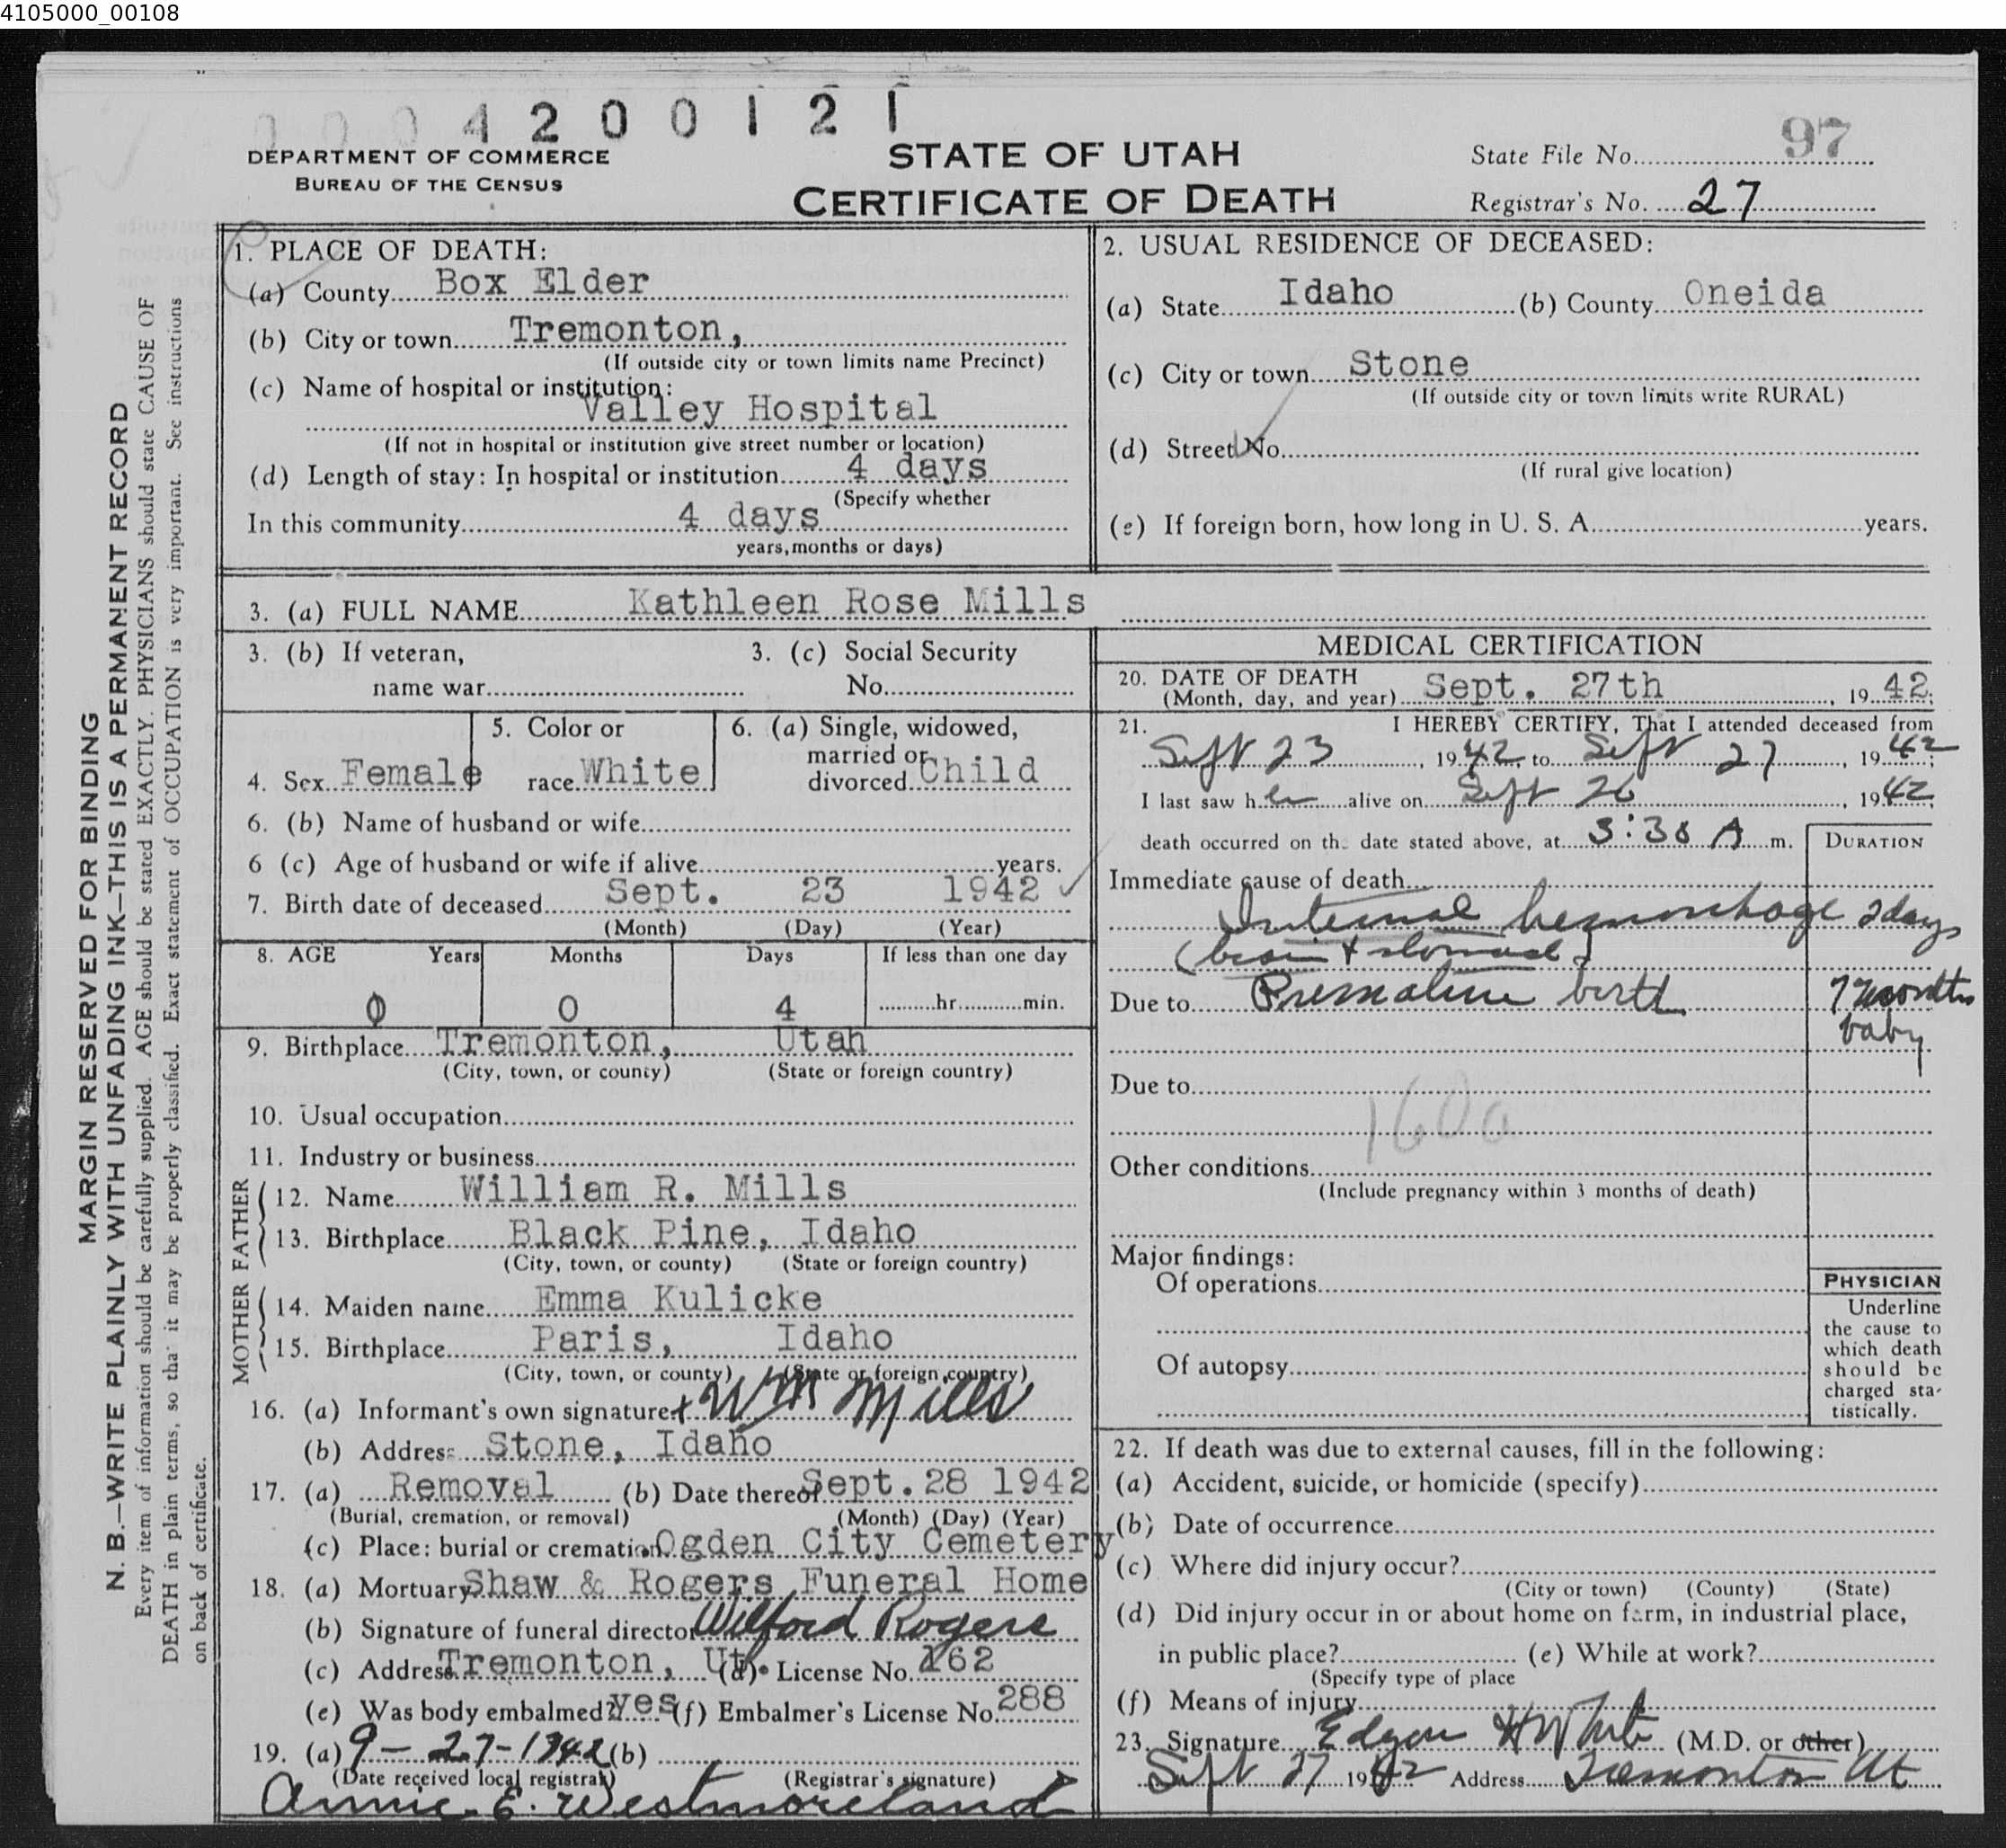 4105000_00108
0004200121
DEPARTMENT OF COMMERCE
BUREAU OF THE CENSUS
STATE OF UTAH
CERTIFICATE OF DEATH
State File No. 97
Registrar's No. 27
MARGIN RESERVED FOR BINDING
N. B.—WRITE PLAINLY WITH UNFADING INK—THIS IS A PERMANENT RECORD
Every item of information should be carefully supplied. AGE should be stated EXACTLY. PHYSICIANS should state CAUSE OF
DEATH in plain terms, so that it may be properly classified. Exact statement of OCCUPATION is very important. See instructions
on back of certificate.
1. PLACE OF DEATH:
(a) County Box Elder
(b) City or town Tremonton,
(If outside city or town limits name Precinct)
(c) Name of hospital or institution:
Valley Hospital
(If not in hospital or institution give street number or location)
(d) Length of stay: In hospital or institution 4 days
(Specify whether
In this community 4 days
years, months or days)
2. USUAL RESIDENCE OF DECEASED:
(a) State Idaho (b) County Oneida
(c) City or town Stone
(If outside city or town limits write RURAL)
(d) Street No.
(If rural give location)
(e) If foreign born, how long in U. S. A. years.
3. (a) FULL NAME Kathleen Rose Mills
3. (b) If veteran, 3. (c) Social Security
name war No.
4. Sex Female
5. Color or
race White
6. (a) Single, widowed,
married or
divorced Child
6. (b) Name of husband or wife
6 (c) Age of husband or wife if alive years.
7. Birth date of deceased Sept. 23 1942 ✓
(Month) (Day) (Year)
8. AGE Years Months Days If less than one day
0 0 4 hr. min.
9. Birthplace Tremonton, Utah
(City, town, or county) (State or foreign country)
10. Usual occupation
11. Industry or business
FATHER
12. Name William R. Mills
13. Birthplace Black Pine, Idaho
(City, town, or county) (State or foreign country)
MOTHER
14. Maiden name Emma Kulicke
15. Birthplace Paris, Idaho
(City, town, or county) (State or foreign country)
16. (a) Informant's own signature + Wm Mills
(b) Address Stone, Idaho
17. (a) Removal (b) Date thereof Sept. 28 1942
(Burial, cremation, or removal) (Month) (Day) (Year)
(c) Place: burial or cremation Ogden City Cemetery
18. (a) Mortuary Shaw & Rogers Funeral Home
(b) Signature of funeral director Wilford Rogers
(c) Address Tremonton, Ut. (d) License No. 162
(e) Was body embalmed? yes (f) Embalmer's License No. 288
19. (a) 9-27-1942 (b)
(Date received local registrar) (Registrar's signature)
Annie E. Westmoreland
MEDICAL CERTIFICATION
20. DATE OF DEATH
(Month, day, and year) Sept. 27th, 1942;
21. I HEREBY CERTIFY, That I attended deceased from
Sept 23, 1942 to Sept 27, 1942;
I last saw her alive on Sept 26, 1942;
death occurred on the date stated above, at 3:30 A m.
DURATION
Immediate cause of death
Internal hemorrhage 2 days
(brain + stomach)
Due to Premature birth 7 months
baby
Due to
160a
Other conditions
(Include pregnancy within 3 months of death)
Major findings:
Of operations
Of autopsy
PHYSICIAN
Underline
the cause to
which death
should be
charged sta-
tistically.
22. If death was due to external causes, fill in the following:
(a) Accident, suicide, or homicide (specify)
(b) Date of occurrence
(c) Where did injury occur?
(City or town) (County) (State)
(d) Did injury occur in or about home on farm, in industrial place,
in public place? (e) While at work?
(Specify type of place
(f) Means of injury
23. Signature Edgar H White (M.D. or other)
Sept 27 1942 Address Tremonton Ut